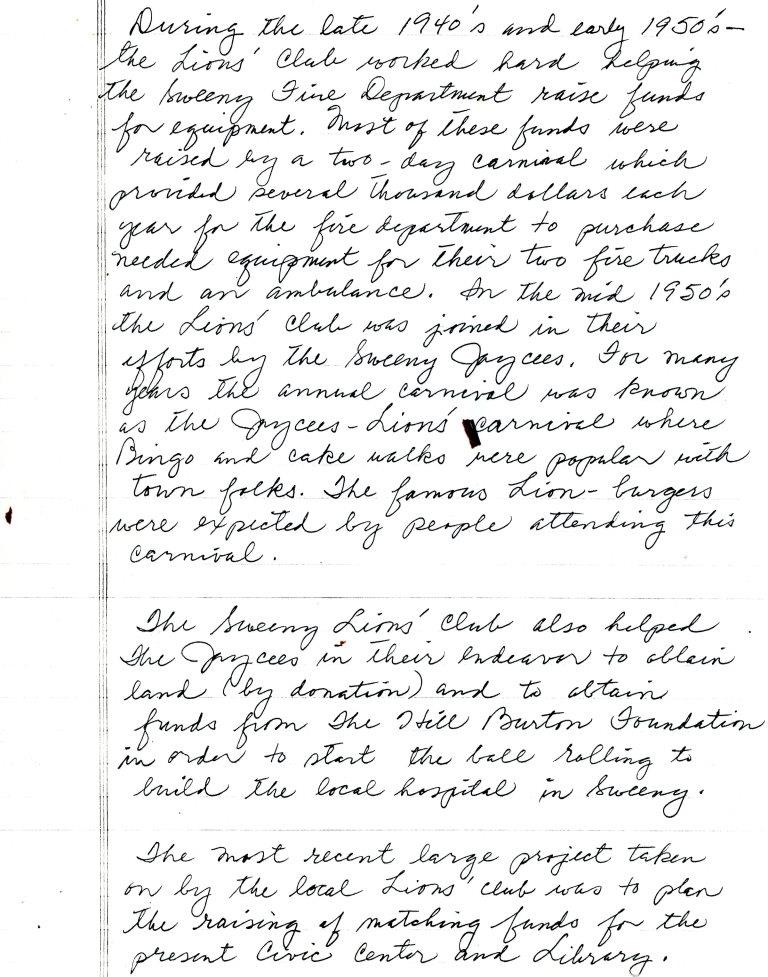 During the late 1940's and early 1950's—
the Lions' Club worked hard helping
the Sweeny Fire Department raise funds
for equipment. Most of these funds were
raised by a two-day carnival which
provided several thousand dollars each
year for the fire department to purchase
needed equipment for their two fire trucks
and an ambulance. In the mid 1950's
the Lions' Club was joined in their
efforts by the Sweeny Jaycees. For many
years the annual carnival was known
as the Jaycees-Lions' carnival where
Bingo and cake walks were popular with
town folks. The famous Lion-burgers
were expected by people attending this
carnival.
The Sweeny Lions' Club also helped
the Jaycees in their endeavor to obtain
land (by donation) and to obtain
funds from the Hill Burton Foundation
in order to start the ball rolling to
build the local hospital in Sweeny.
The most recent large project taken
on by the local Lions' club was to plan
the raising of matching funds for the
present Civic Center and Library.